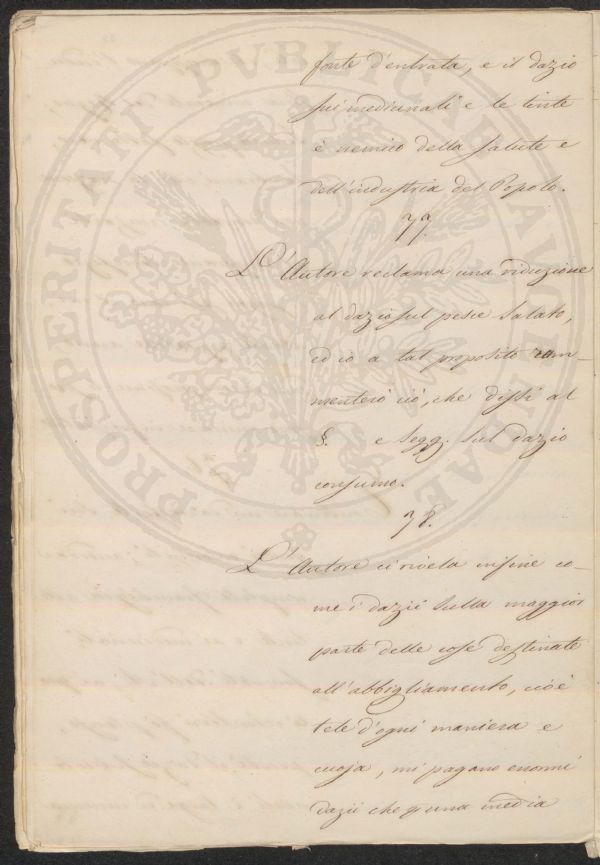 fonte d'entrata, e il dazio
sui medicinali e le tinte
è nemico della salute e
dell'industria del Popolo.
77.
L'Autore reclama una riduzione
al dazio sul pesce salato,
ed io a tal proposito ram-
menterò ciò, che dissi al
§. e segg. sul dazio
consumo.
78.
L'Autore ci rivela infine co-
me i dazii sulla maggior
parte delle cose destinate
all'abbigliamento, cioè
tele d'ogni maniera e
cuoja, mi pagano enormi
dazii che p una media
PROSPERITATI PVBLICAE AVGENDAE